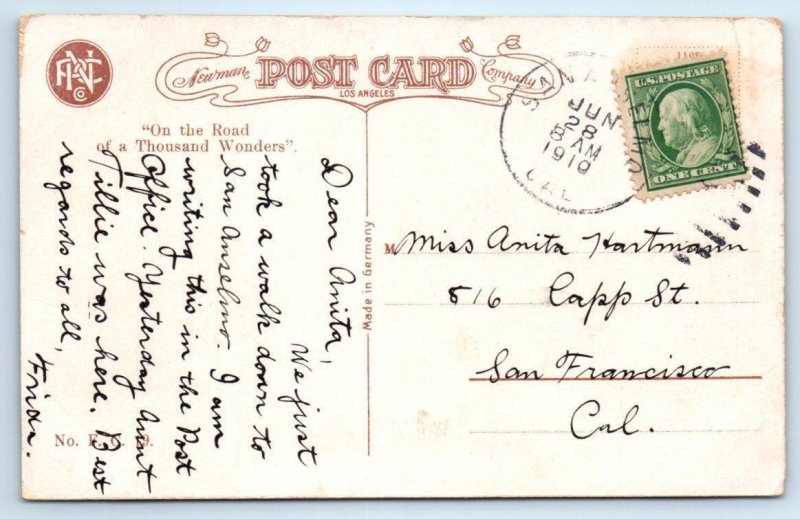 Newman POST CARD Company
LOS ANGELES
"On the Road
of a Thousand Wonders".
Dear Anita,
We just
took a walk down to
San Anselmo. I am
writing this in the Post
Office. Yesterday Aunt
Tillie was here. Best
regards to all,
Frida.
No.
Made in Germany
SAN ANSELMO
JUN
28
8 AM
1910
CAL
U.S. POSTAGE
ONE CENT
M
Miss Anita Hartmann
816 Capp St.
San Francisco
Cal.